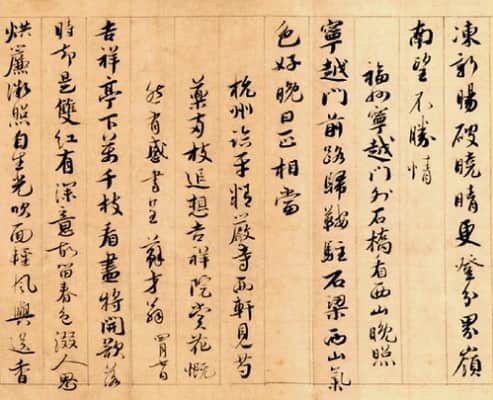 凍新陽破曉晴更登分界嶺
南望不勝情
福州寧越門外石橋看西山晚照
寧越門前路歸鞍駐石梁西山氣
色好晚日正相當
杭州臨平精嚴寺西軒見芍
藥兩枝追想吉祥院賞花慨
然有感書呈蘇才翁
吉祥亭下萬千枝看盡將開欲落
時却是雙紅有深意故留春色綴人思
烘簾微照自生光吹面輕風與送香